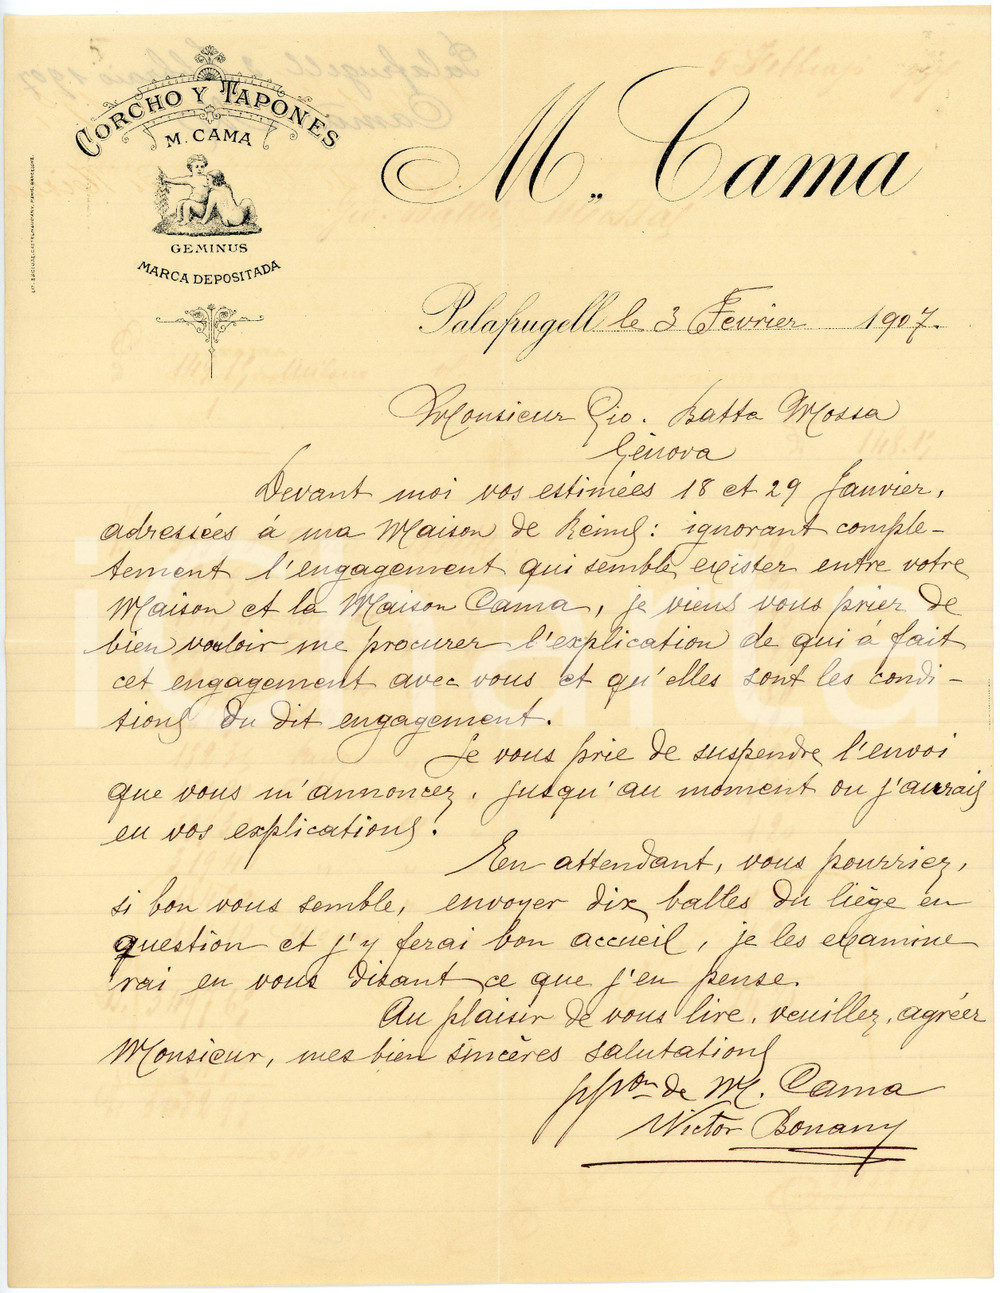 CORCHO Y TAPONES
M. CAMA
GEMINUS
MARCA DEPOSITADA
M. Cama
Palafrugell le 3 Fevrier 1907.
Monsieur Gio. Batta Mossa
Génova
Devant moi vos estimées 18 et 29 Janvier,
adressées á ma Maison de Reims: ignorant comple-
tement l'engagement qui semble exister entre votre
Maison et la Maison Cama, je viens vous prier de
bien vouloir me procurer l'explication de qui á fait
cet engagement avec vous et qu'elles sont les condi-
tions du dit engagement.
Je vous prie de suspendre l'envoi
que vous m'annoncez, jusqu'au moment ou j'aurais
eu vos explications.
En attendant, vous pourriez,
si bon vous semble, envoyer dix balles du liège en
question et j'y ferai bon accueil, je les examine
rai en vous disant ce que j'en pense.
Au plaisir de vous lire, veuillez, agréer
Monsieur, mes bien sincères salutations
ppon de M. Cama
Victor Bonany
iCharta